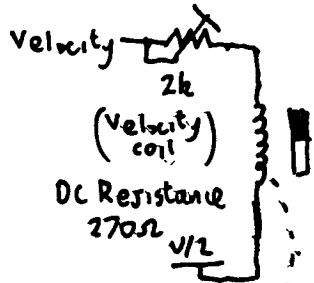 Velocity
2k
(Velocity
coil)
DC Resistance
270Ω
V/2